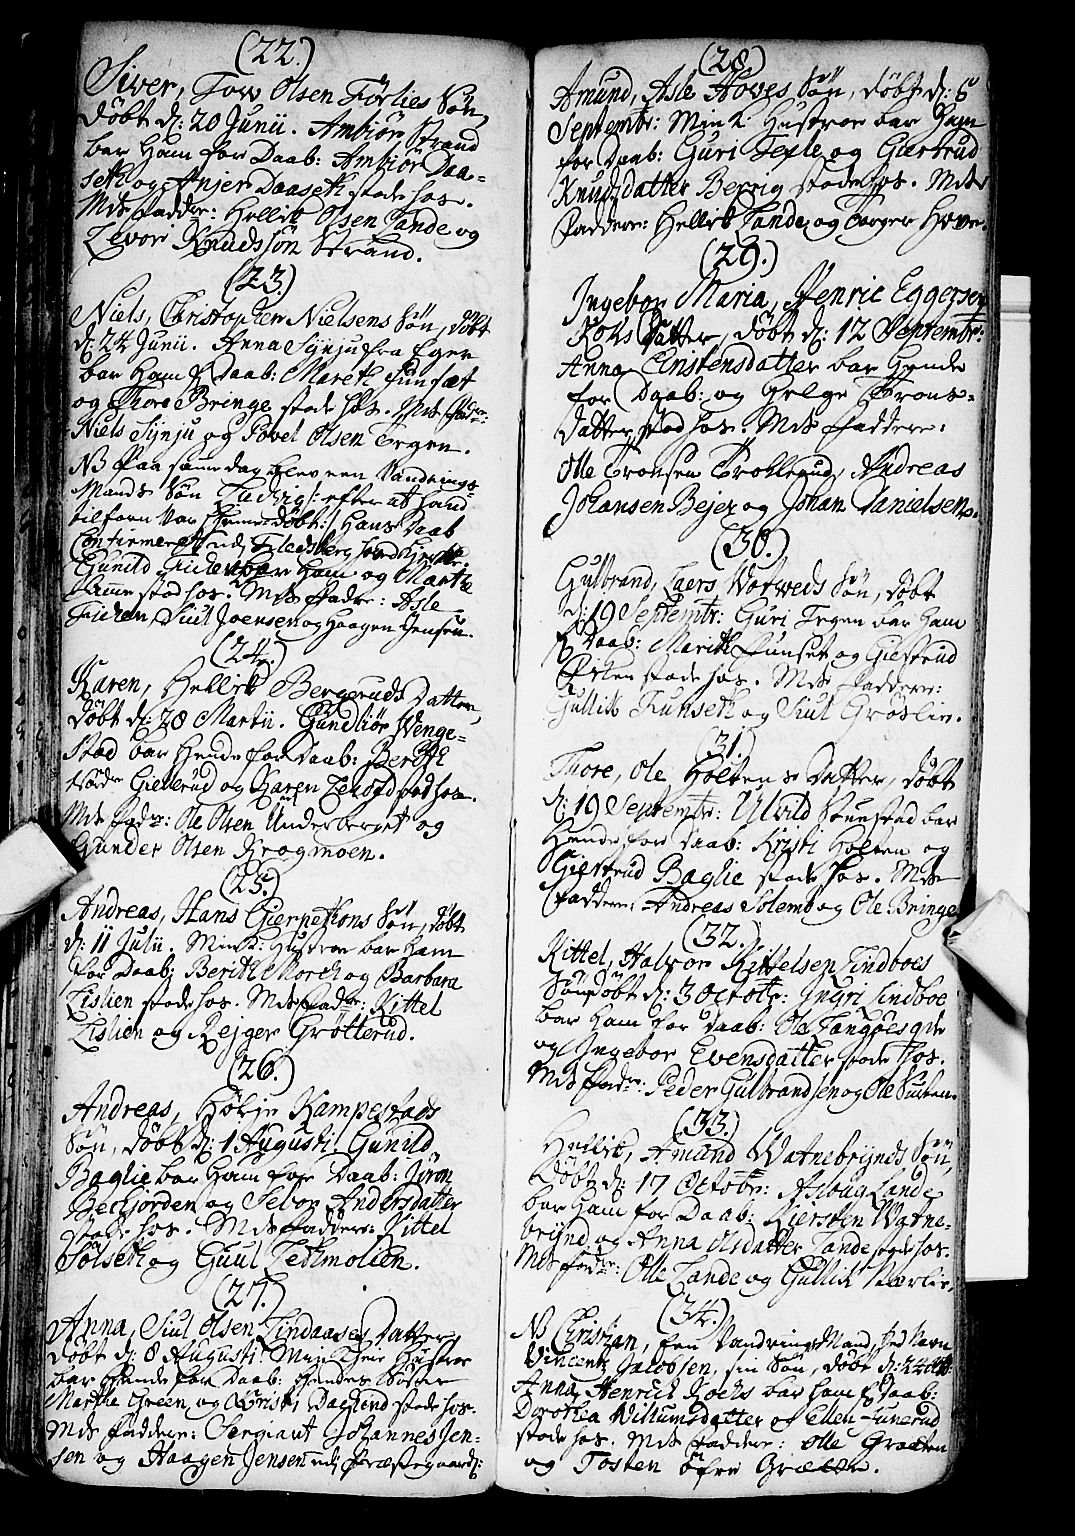 (22.)
Siver, Tow Olsen Förlies Sön,
döbt d: 20 Junii. Ambiör Strand
bar Ham for Daab: Ambiör Daa=
seth og Anjer Daaseth stode hos.
Mds fadde: Hellik Olsen Lande og
Levor Knudssön Strand.
(23)
Niels, Christopher Nielsens Sön, döbt
d: 24 Junii. Anna Synju fra Eger
bar Ham f Daab: Mareth Funsæt
og Thore Bringe stode hos. Mds fadre:
Niels Synju og Povel Olsen Tegen.
NB Paa samme dag blev een Vandrings
Mands Sön Ludvig: efter at hand
tilforn var hiemedöbt: / Hans Daab
Confirmeret udj Flesberg hovedkirke
Gunild bar Ham og Marthe
stod hos. Mds fadre: Asle
Juul Joensen og Haagen Jensen.
(24.)
Karen, Hellik Bergeruds Datter,
döbt d: 28 Martii. Gundhior Wenge=
stad bar Hende for Daab: Berith
Gielterud og Karen stod hos.
Mds fadre: Ole Olsen Underberget og
Gunder Olsen Krogmoen.
(25.)
Andreas, Hans Gierpekons Sön, döbt
d: 11 Julii. Min k: Hustroe bar Ham
for Daab: Berith Morch og Barbara
Lislien stode hos. Mds fadre: Kittel
Lislien og Rejger Grötterud.
(26.)
Andreas, Hölje Kampestads
Sön, döbt d: 1 Augusti. Gunild
Baglie bar Ham for Daab: Jörøn
Bechjorden og Sebor Andersdatter
stode hos. Mds faddere: Kittel
Sölseth og Guul Lesmolien.
(27.)
Anna, Siul Olsen Lindaases Datter,
döbt d: 8 Augusti. Min Hustroe
bar Hende for Daab: Hendes Söster
Martha Green og Kristi Daglind stode hos.
Mds faddere: Sergiant Johannes Jen=
sen og Haagen Jensen udj Præstegaard:
(28)
Amund, Asle Hoves Sön, döbt d: 5
Septembr: Min k: Hustroe bar Ham
for Daab: Guri Texle og Giertrud
Knudsdatter Berrig stode hos. Mds
faddere: Hellik Lande og Torger Hove.
(29.)
Ingebor Maria, Henric Eggersen
Kohs Datter, döbt d: 12 Septembr:
Anna Christensdatter bar Hende
for Daab: og Helge Trons=
datter stod hos. Mds faddere:
Olle Tronsen Trollerud, Andreas
Johansen Bejer og Johan Danielsen.
(30.)
Gulbrand, Laers Worweds Sön, döbt
d: 19 Septembr: Guri Tegen bar Ham
f Daab: Marith Funset og Giertrud
stode hos. Mds faddere:
Gullik Funseth og Siul Gröslie.
(31.)
Thore, Ole Holtens Datter, döbt
d: 19 Septembr: Ulvild bar
Hende for Daab: Kristi Holten og
Giertrud Baglie stode hos. Mds
faddere: Andreas Solemb og Ole Bringe.
(32.)
Kittel, Halvor Kittelsen Lindboes
Sön döbt d: 3 Octobr: Ingri Lindboe
bar Ham for Daab: Ole
og Ingebor Evensdatter stode hos.
Mds fadre: Peder Gulbrandsen og Ole
(33.)
Hellik, Amund Watnebrynds Sön,
döbt d: 17 Octobr: Aslaug Lande
bar Ham for Daab: Kiersten Watne=
brynd og Anna Olsdatter Lande stode hos.
Mds fadre: Olle Lande og Gullik
(34.)
NB Christian, Een Vandrings Mand, ved Navn
Vincentz Jacobsen, sin Sön, döbt d: 24
Anna Henrich Kochs bar Ham f Daab:
Dorothea Willumsdatter og Ellen Funerud
stode hos. Mds faddere: Olle Græten
og Tosten öfre Græten.